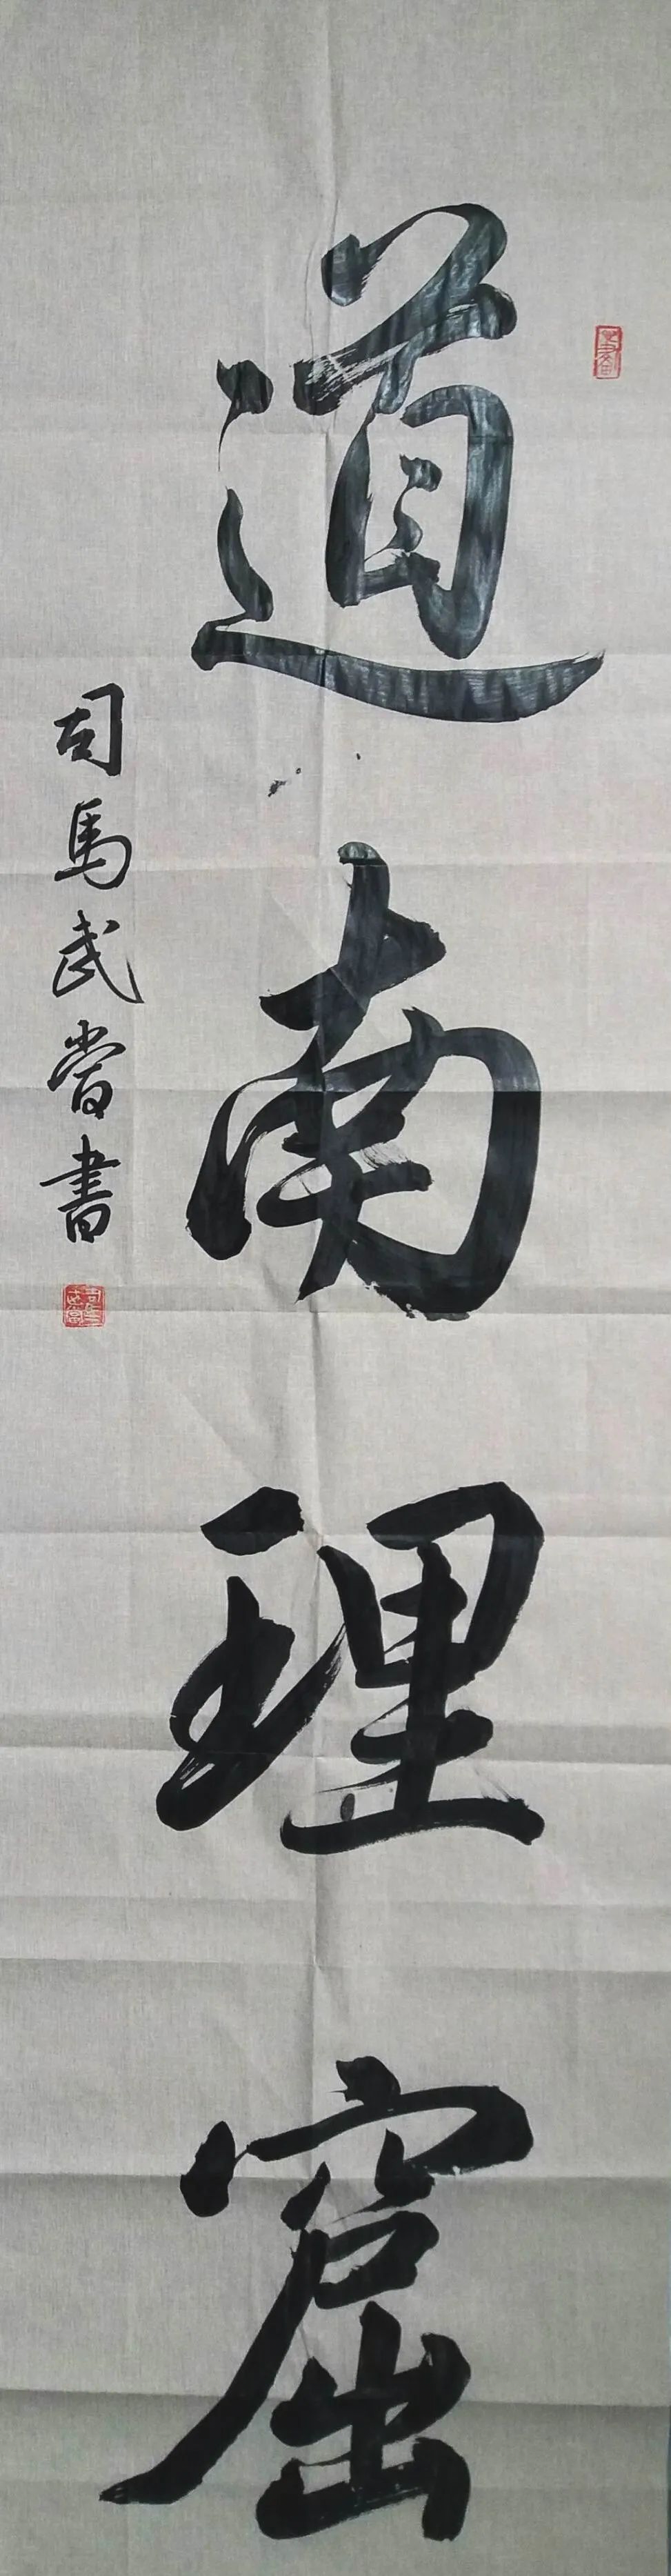 道南理窟
司馬武當書